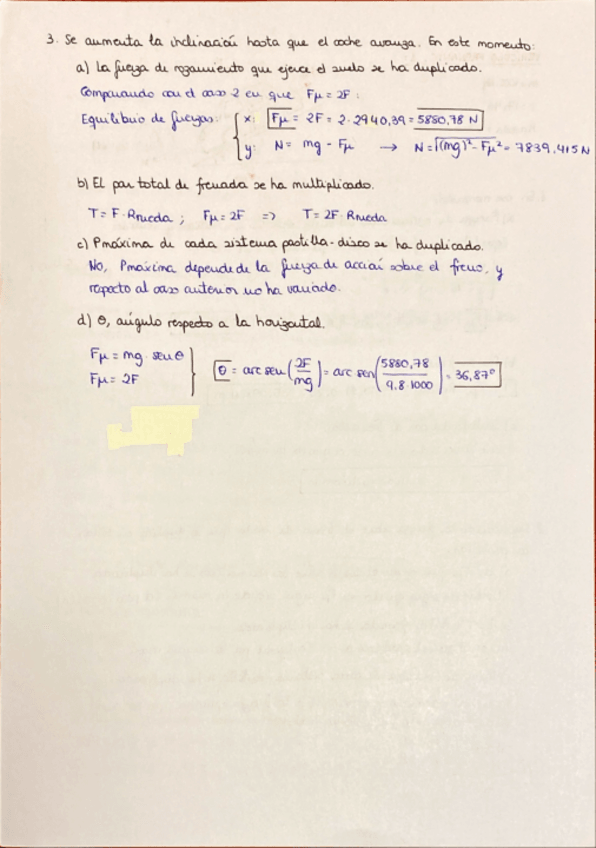 3. Se aumenta la inclinación hasta que el coche avanza. En este momento:
a) La fuerza de rozamiento que ejerce el suelo se ha duplicado.
Comparando con el caso 2 en que Fμ = 2F:
Equilibrio de fuerzas: { x: Fμ = 2F = 2·2940,39 = 5880,78 N
y: N = mg - Fμ → N = √(mg)² - Fμ² = 7839,415 N
b) El par total de frenada se ha multiplicado.
T = F·Rrueda ; Fμ = 2F => T = 2F·Rrueda
c) Pmáxima de cada sistema pastilla-disco se ha duplicado.
No, Pmáxima depende de la fuerza de acción sobre el freno, y
respecto al caso anterior no ha variado.
d) θ, ángulo respecto a la horizontal.
Fμ = mg·senθ
Fμ = 2F } θ = arc sen(2F/mg) = arc sen(5880,78/9,8·1000) = 36,87°